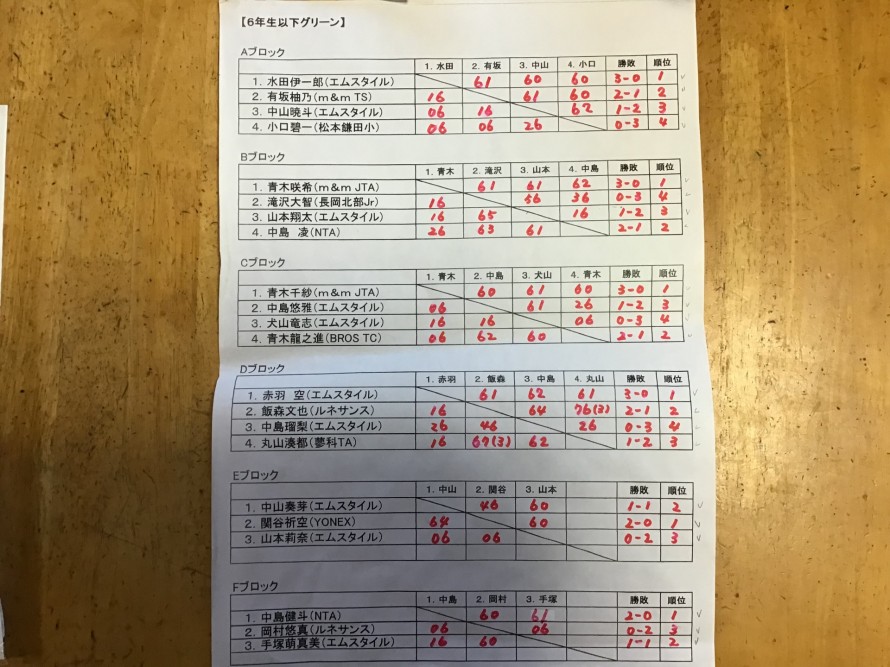 【6年生以下グリーン】
Aブロック
1. 水田 2. 有坂 3. 中山 4. 小口 勝敗 順位
1. 水田伊一郎(エムスタイル) 61 60 60 3-0 1
2. 有坂柚乃(m&m TS) 16 61 60 2-1 2
3. 中山暁斗(エムスタイル) 06 16 62 1-2 3
4. 小口碧一(松本鎌田小) 06 06 26 0-3 4
Bブロック
1. 青木 2. 滝沢 3. 山本 4. 中島 勝敗 順位
1. 青木咲希(m&m JTA) 61 61 62 3-0 1
2. 滝沢大智(長岡北部Jr) 16 56 36 0-3 4
3. 山本翔太(エムスタイル) 16 65 16 1-2 3
4. 中島 凌(NTA) 26 63 61 2-1 2
Cブロック
1. 青木 2. 中島 3. 犬山 4. 青木 勝敗 順位
1. 青木千紗(m&m JTA) 60 61 60 3-0 1
2. 中島悠雅(エムスタイル) 06 61 26 1-2 3
3. 犬山竜志(エムスタイル) 16 16 06 0-3 4
4. 青木龍之進(BROS TC) 06 62 60 2-1 2
Dブロック
1. 赤羽 2. 飯森 3. 中島 4. 丸山 勝敗 順位
1. 赤羽 空(エムスタイル) 61 62 61 3-0 1
2. 飯森文也(ルネサンス) 16 64 76(3) 2-1 2
3. 中島瑠梨(エムスタイル) 26 46 26 0-3 4
4. 丸山湊都(蓼科TA) 16 67(3) 62 1-2 3
Eブロック
1. 中山 2. 関谷 3. 山本 勝敗 順位
1. 中山奏芽(エムスタイル) 46 60 1-1 2
2. 関谷祈空(YONEX) 64 60 2-0 1
3. 山本莉奈(エムスタイル) 06 06 0-2 3
Fブロック
1. 中島 2. 岡村 3. 手塚 勝敗 順位
1. 中島健斗(NTA) 60 61 2-0 1
2. 岡村悠真(ルネサンス) 06 06 0-2 3
3. 手塚萌真美(エムスタイル) 16 60 1-1 2